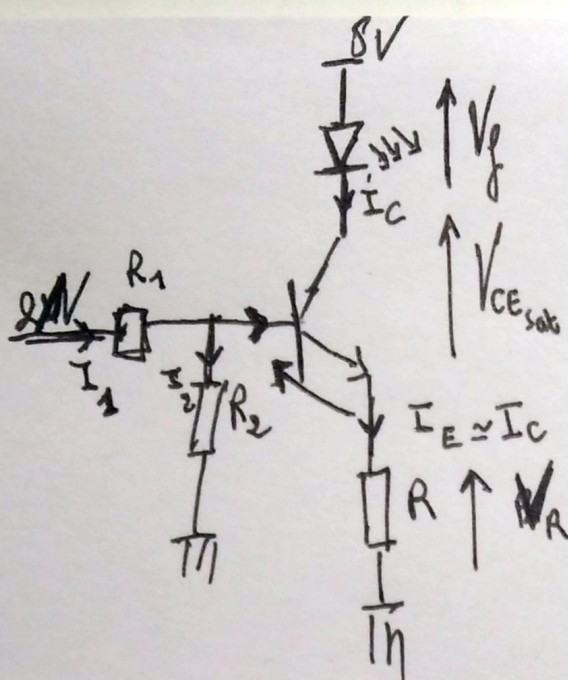 8V
V_f
I_C
R_1
V_CE_sat
I_1
I_2
R_2
I_E ≃ I_C
R
V_R